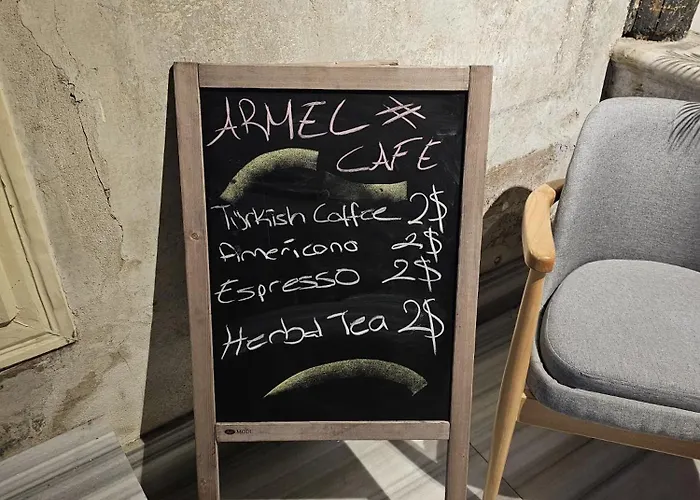 ARMEL
CAFE
Türkish Coffee 2$
Americano 2$
Espresso 2$
Herbal Tea 2$